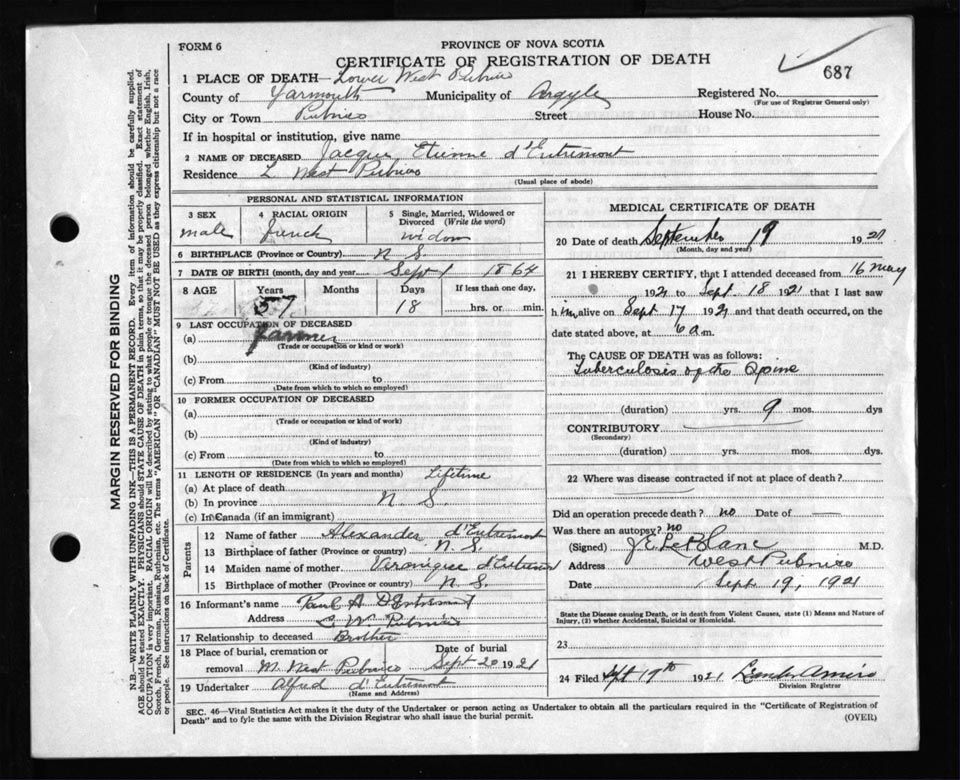 FORM 6
PROVINCE OF NOVA SCOTIA
CERTIFICATE OF REGISTRATION OF DEATH
687
1 PLACE OF DEATH—Lower West Pubnico
County of Yarmouth Municipality of Argyle Registered No.
(For use of Registrar General only)
City or Town Pubnico Street House No.
If in hospital or institution, give name
2 NAME OF DECEASED Jacque Etienne d'Entremont
Residence L West Pubnico
(Usual place of abode)
PERSONAL AND STATISTICAL INFORMATION
3 SEX male
4 RACIAL ORIGIN french
5 Single, Married, Widowed or Divorced (Write the word) widow
6 BIRTHPLACE (Province or Country) N S
7 DATE OF BIRTH (month, day and year) Sept 1 1864
8 AGE Years Months Days If less than one day,
57 18 hrs. or min.
9 LAST OCCUPATION OF DECEASED
(a) farmer
(Trade or occupation or kind or work)
(b)
(Kind of industry)
(c) From to
(Date from which to which so employed)
10 FORMER OCCUPATION OF DECEASED
(a)
(Trade or occupation or kind or work)
(b)
(Kind of industry)
(c) From to
(Date from which to which so employed)
11 LENGTH OF RESIDENCE (In years and months) Lifetime
(a) At place of death
(b) In province N. S.
(c) In Canada (if an immigrant)
Parents
12 Name of father Alexander d'Entremont
13 Birthplace of father (Province or country) N. S.
14 Maiden name of mother Veronique d'Entremont
15 Birthplace of mother (Province or country) N. S.
16 Informant's name Paul A D'Entremont
Address L. W. Pubnico
17 Relationship to deceased Brother
18 Place of burial, cremation or removal M. West Pubnico Date of burial Sept 20 1921
19 Undertaker Alfred d'Entremont
(Name and Address)
MEDICAL CERTIFICATE OF DEATH
20 Date of death September 19 1921
(Month, day and year)
21 I HEREBY CERTIFY, that I attended deceased from 16 May
1921 to Sept. 18 1921 that I last saw
him alive on Sept 17 1921 and that death occurred, on the
date stated above, at 6 a.m.
The CAUSE OF DEATH was as follows:
Tuberculosis of the Spine
(duration) yrs. 9 mos. dys
CONTRIBUTORY
(Secondary)
(duration) yrs. mos. dys.
22 Where was disease contracted if not at place of death?
Did an operation precede death? no Date of —
Was there an autopsy? no
(Signed) J E LeBlanc M.D.
Address West Pubnico
Date Sept. 19, 1921
State the Disease causing Death, or in death from Violent Causes, state (1) Means and Nature of Injury, (2) whether Accidental, Suicidal or Homicidal.
23
24 Filed Sept 19th 1921 Amiro
Division Registrar
SEC. 46—Vital Statistics Act makes it duty of the Undertaker or person acting as Undertaker to obtain all the particulars required in the "Certificate of Registration of
Death" and to fyle the same with the Division Registrar who shall issue the burial permit.
(OVER)
MARGIN RESERVED FOR BINDING
N.B.—WRITE PLAINLY WITH UNFADING INK—THIS IS A PERMANENT RECORD. Every item of information should be carefully supplied.
AGE should be stated EXACTLY. PHYSICIANS should STATE CAUSE OF DEATH in plain terms, so that it may be properly classified. Exact statement of
OCCUPATION is very important. RACIAL ORIGIN will be described by stating to what people or tongue the deceased person belonged whether English, Irish,
Scotch, French, German, Russian, Ruthenian, etc. The terms "AMERICAN" OR "CANADIAN" MUST NOT BE USED as they express citizenship but not a race
or people. See instructions on back of Certificate.